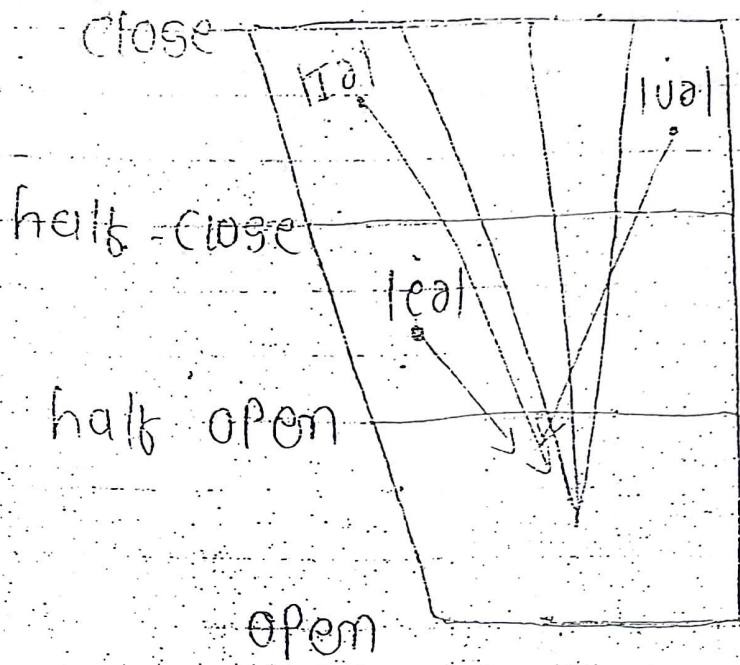 close
|Iə|
|ʊə|
half-close
|eə|
half open
open